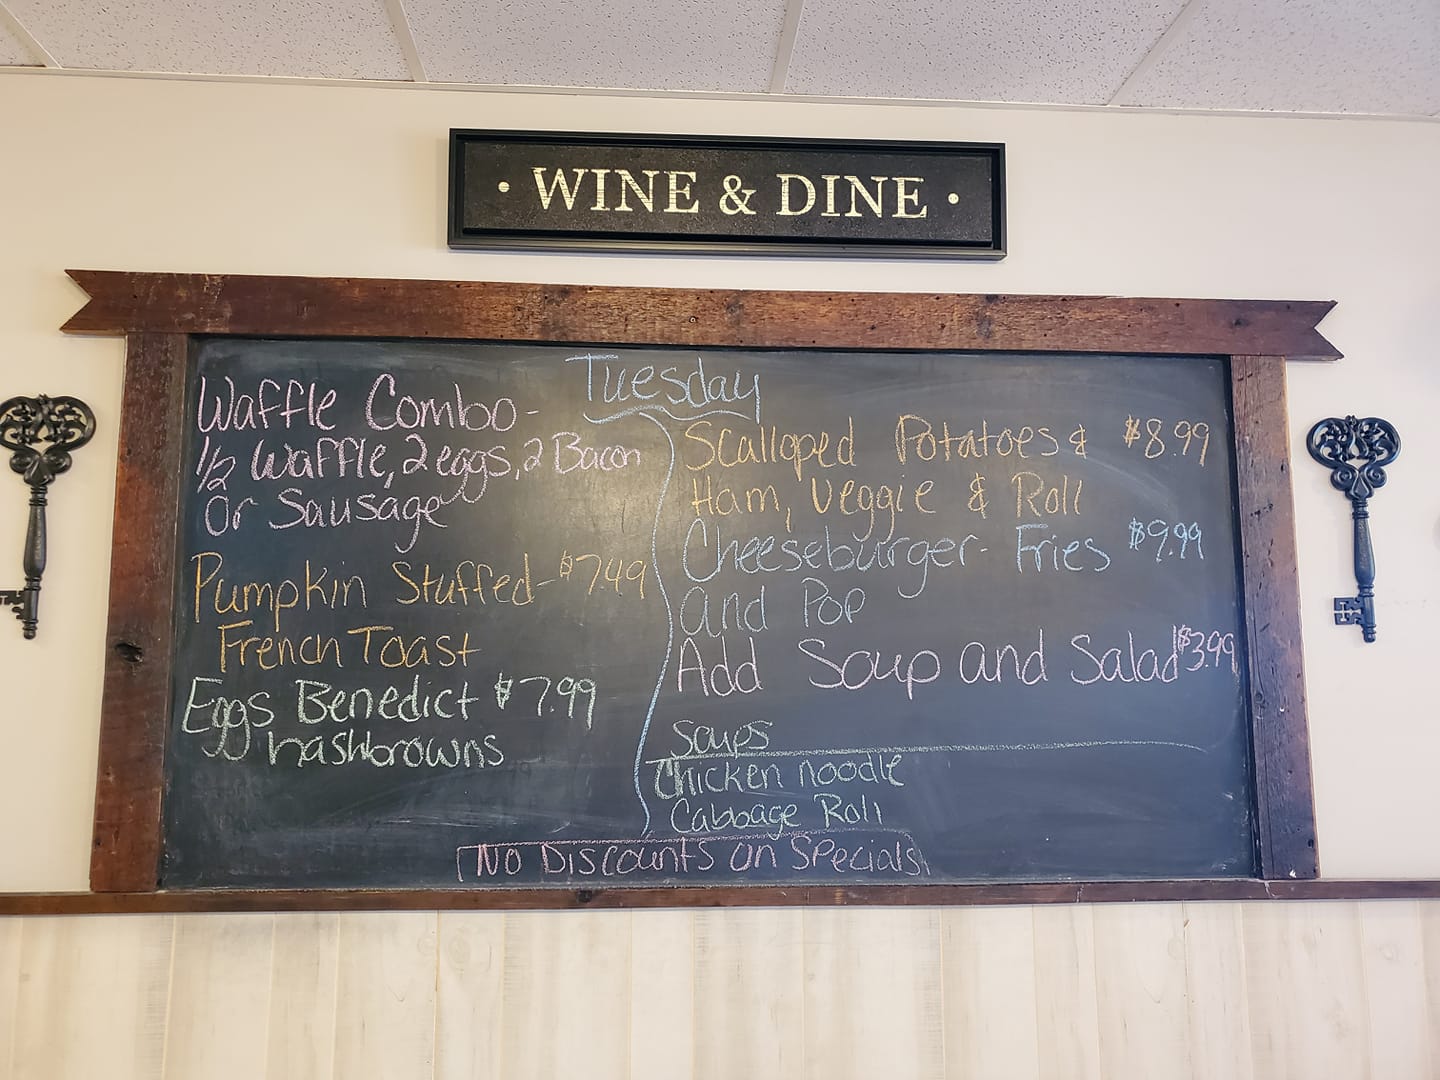 • WINE & DINE •
Tuesday
Waffle Combo-
1/2 Waffle, 2 eggs, 2 Bacon
Or Sausage
Pumpkin Stuffed- $7.49
French Toast
Eggs Benedict $7.99
hashbrowns
Scalloped Potatoes & $8.99
Ham, Veggie & Roll
Cheeseburger- Fries $9.99
and Pop
Add Soup and Salad $3.99
Soups
Chicken noodle
Cabbage Roll
No Discounts on Specials